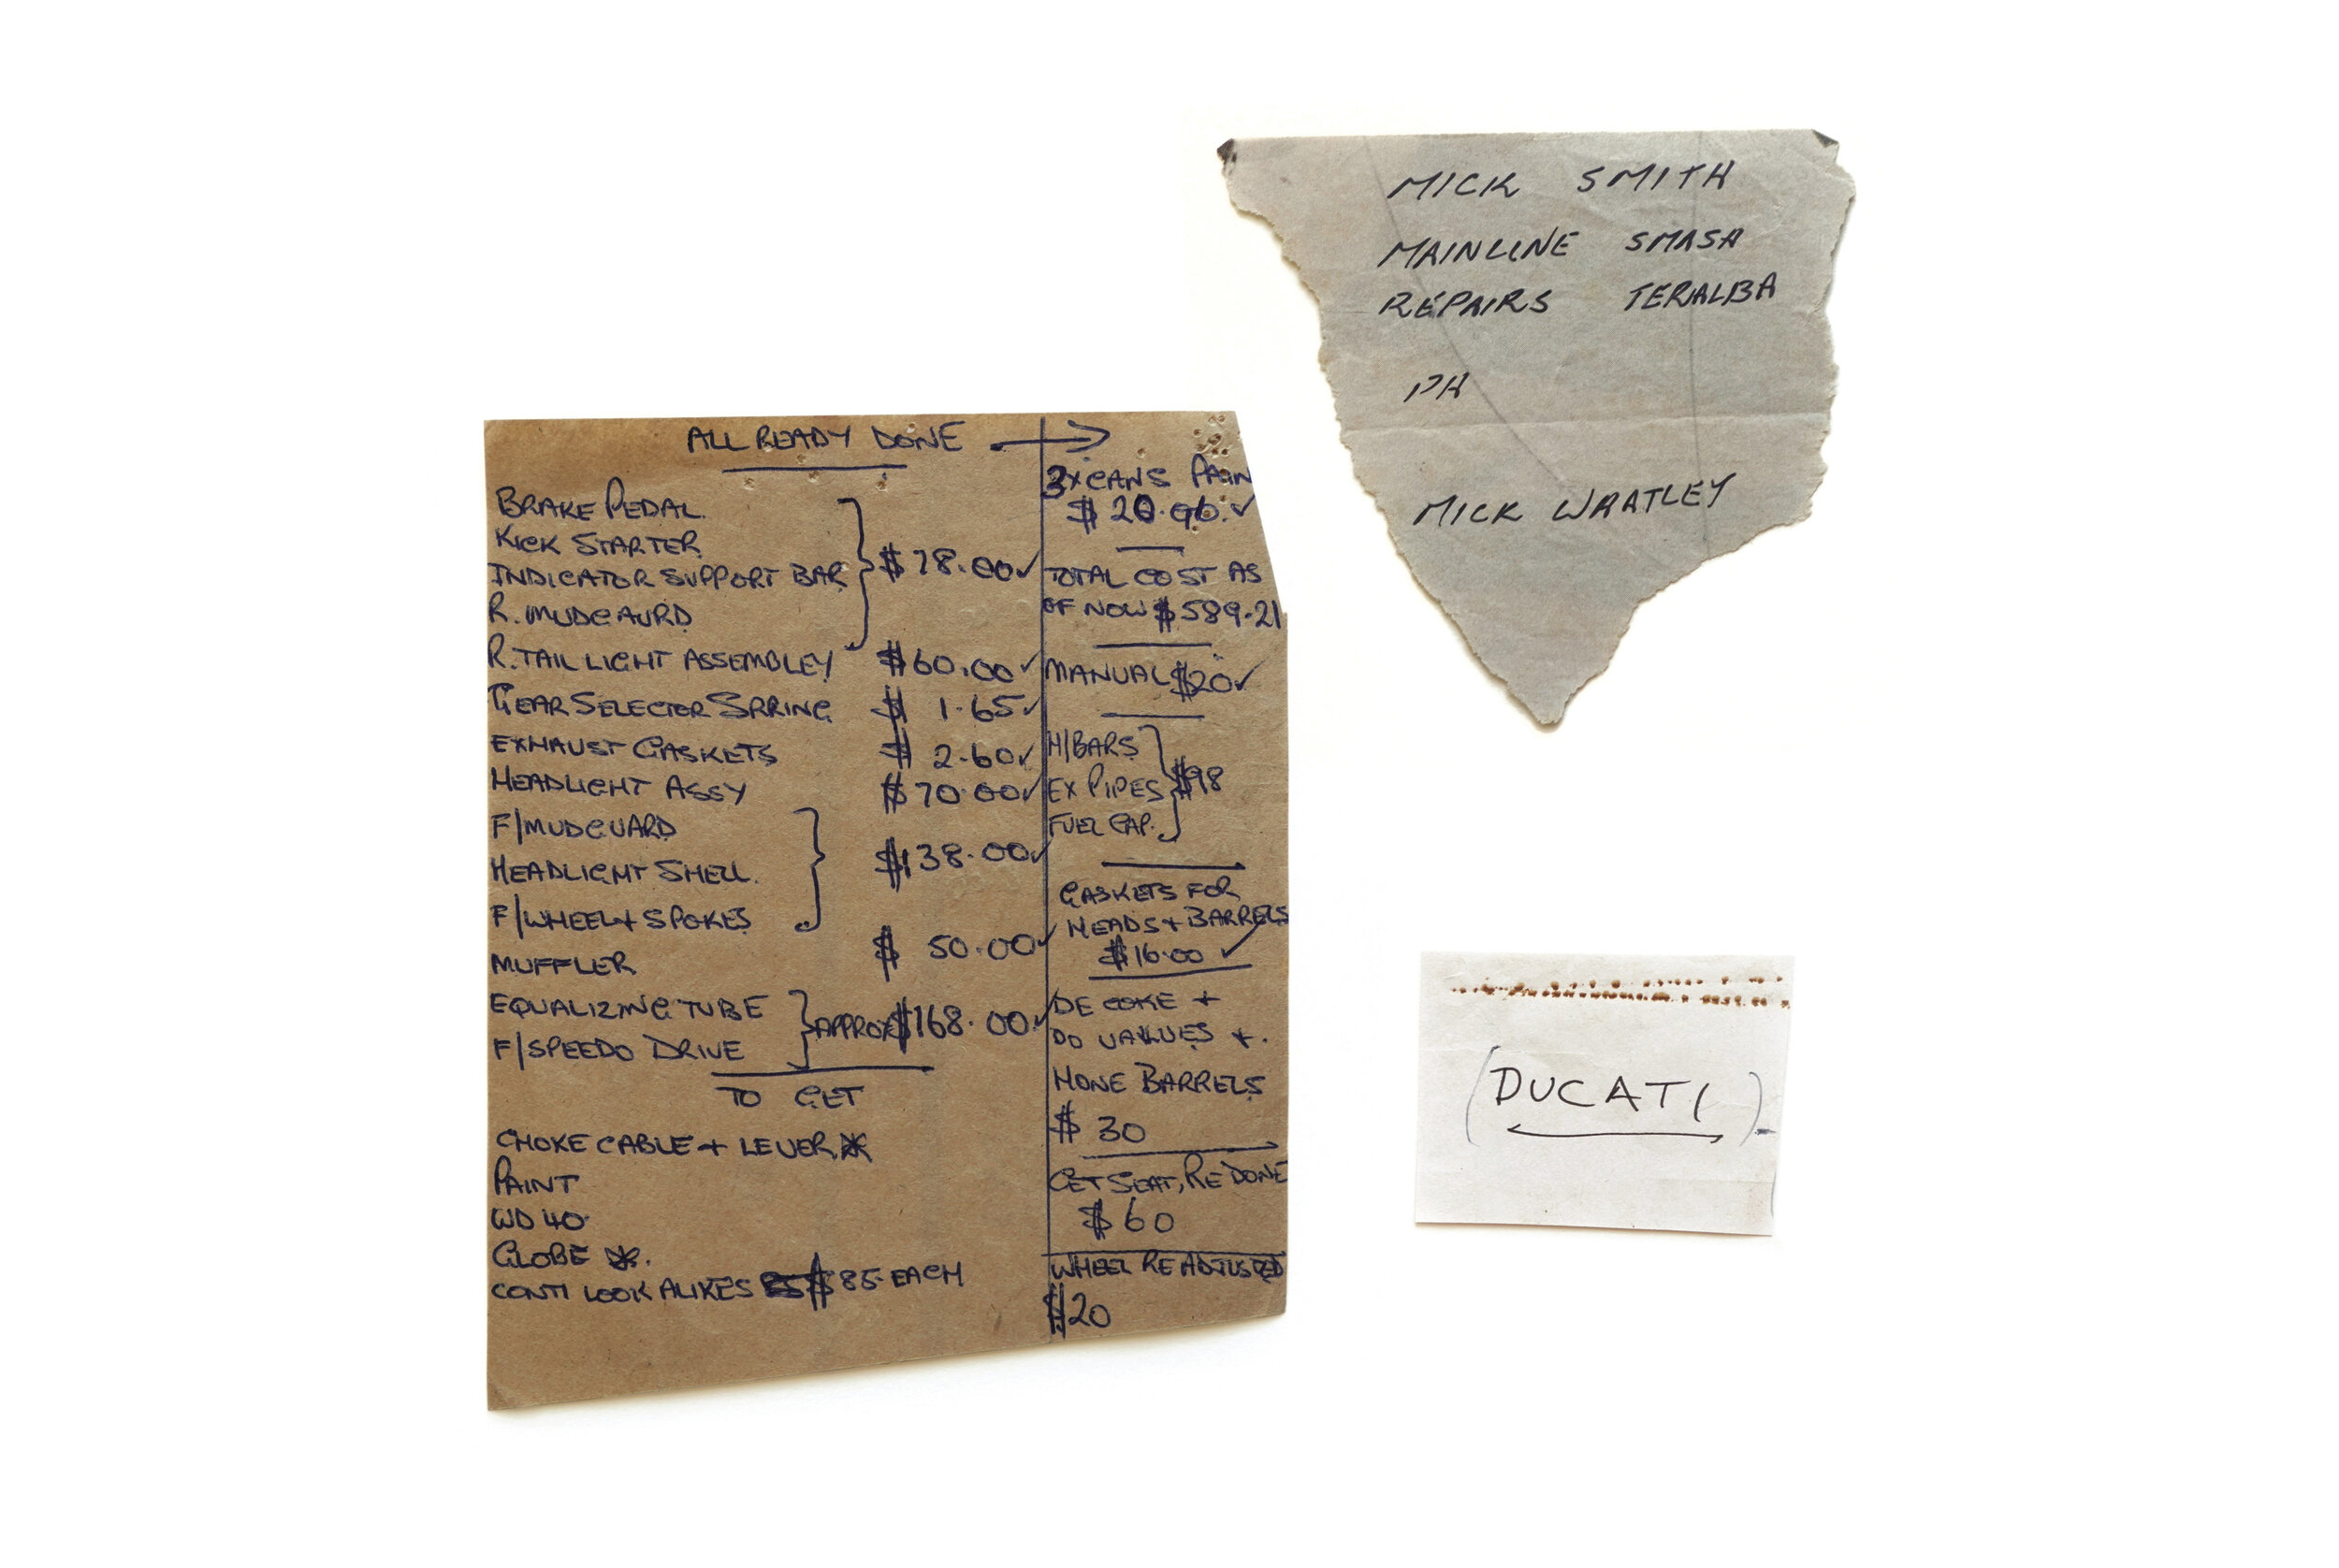 ALL READY DONE →
BRAKE PEDAL
KICK STARTER
INDICATOR SUPPORT BAR
R. MUDGAURD
$78.00 ✓
R. TAIL LIGHT ASSEMBLEY $60.00 ✓
GEAR SELECTOR SPRING $ 1.65 ✓
EXHAUST GASKETS $ 2.60 ✓
HEADLIGHT ASSY $70.00 ✓
F/MUDGUARD
HEADLIGHT SHELL.
F/WHEEL + SPOKES
$138.00 ✓
MUFFLER $ 50.00 ✓
EQUALIZING TUBE
F/SPEEDO DRIVE
APPROX $168.00 ✓
TO GET
CHOKE CABLE + LEVER *
PAINT
WD 40
GLOBE *.
CONTI LOOK ALIKES $85. EACH
3X CANS PAIN
$ 20.96. ✓
TOTAL COST AS
OF NOW $589.21
MANUAL $20 ✓
H/BARS
EX PIPES
FUEL CAP.
$98
GASKETS FOR
HEADS + BARRELS
$16.00 ✓
DE COKE +
DO VALVUES +.
HONE BARRELS
$ 30
GET SEAT, RE DONE
$60
WHEEL RE ADJUSTED
$20
MICK SMITH
MAINLINE SMASH
REPAIRS TERALBA
PH
MICK WRATLEY
(DUCATI)